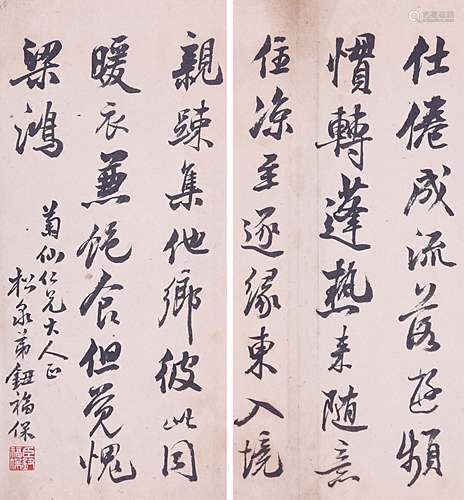 仕倦成流落遊頻
慣轉蓬熱來隨意
住涼至逐緣東入境
親踈集他鄉彼此同
暖衣兼飽食但覺愧
梁鴻
菊仙仁兄大人正
松泉弟鈕福保